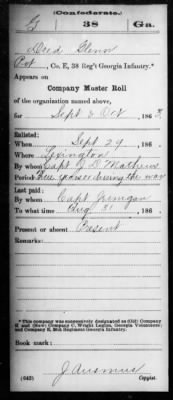 (Confederate.)
G 38 Ga.
Reed Glenn
Pvt, Co. E, 38 Reg't Georgia Infantry.*
Appears on
Company Muster Roll
of the organization named above,
for Sept & Oct, 1863.
Enlisted:
When Sept 29, 186
Where Lexington
By whom Capt J D Mathews
Period three years or during the war
Last paid:
By whom Capt Jernigan
To what time Aug 31, 186
Present or absent Present
Remarks:
*This company was successively designated as (Old) Company
and (New) Company C, Wright Legion, Georgia Volunteers
and Company E, 38th Regiment Georgia Infantry.
Book mark:
J Ausmus
(642) Copyist.